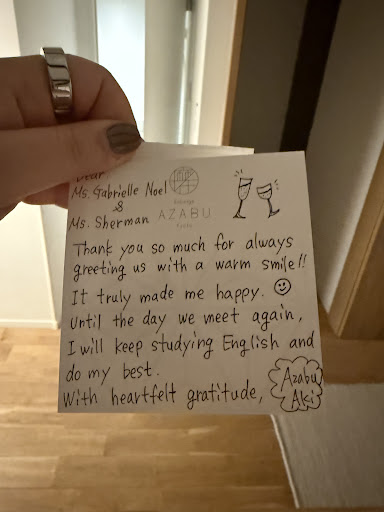 Dear
Ms. Gabrielle Noel
&
Ms. Sherman
AZABU
Thank you so much for always
greeting us with a warm smile!!
It truly made me happy.
Until the day we meet again,
I will keep studying English and
do my best.
With heartfelt gratitude,
Azabu
Aki